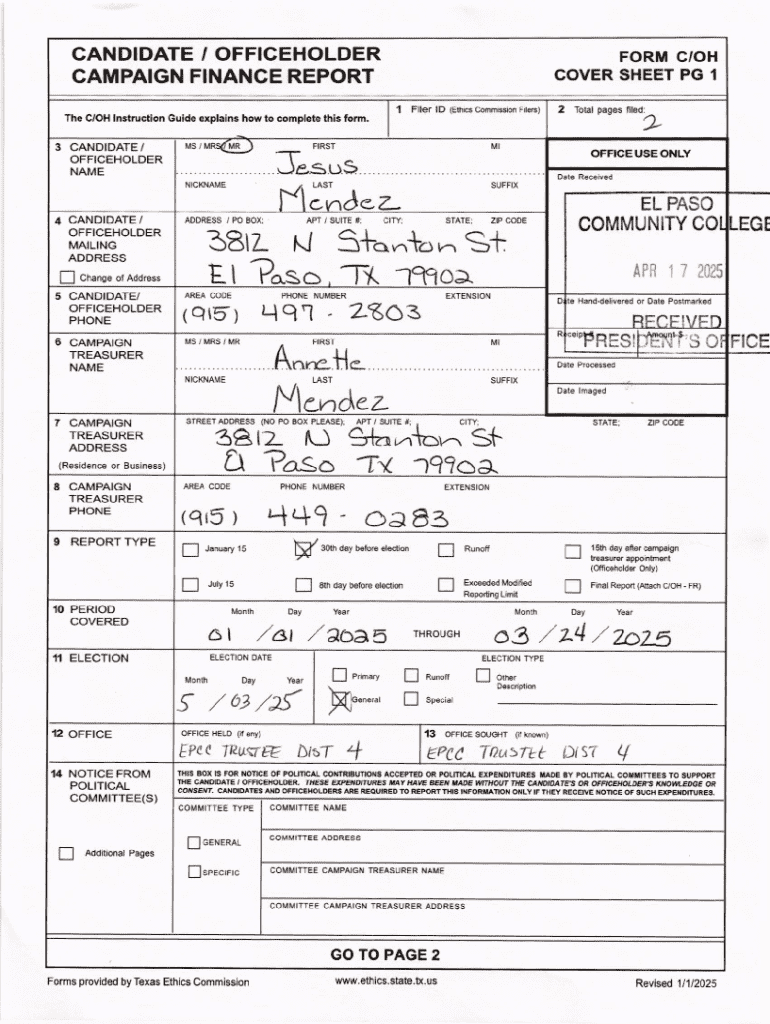 CANDIDATE / OFFICEHOLDER
CAMPAIGN FINANCE REPORT
FORM C/OH
COVER SHEET PG 1
The C/OH Instruction Guide explains how to complete this form.
1 Filer ID (Ethics Commission Filers)
2 Total pages filed:
2
3 CANDIDATE / OFFICEHOLDER NAME
MS / MRS / MR FIRST MI
Jesus
NICKNAME LAST SUFFIX
Mendez
OFFICE USE ONLY
Date Received
EL PASO
COMMUNITY COLLEGE
APR 17 2025
Date Hand-delivered or Date Postmarked
RECEIVED
Receipt # Amount $
PRESIDENT'S OFFICE
Date Processed
Date Imaged
4 CANDIDATE / OFFICEHOLDER MAILING ADDRESS
Change of Address
ADDRESS / PO BOX; APT / SUITE #; CITY; STATE; ZIP CODE
3812 N Stanton St.
El Paso, TX 79902
5 CANDIDATE/ OFFICEHOLDER PHONE
AREA CODE PHONE NUMBER EXTENSION
(915) 497 - 2803
6 CAMPAIGN TREASURER NAME
MS / MRS / MR FIRST MI
Annette
NICKNAME LAST SUFFIX
Mendez
7 CAMPAIGN TREASURER ADDRESS
(Residence or Business)
STREET ADDRESS (NO PO BOX PLEASE); APT / SUITE #; CITY; STATE; ZIP CODE
3812 N Stanton St
El Paso TX 79902
8 CAMPAIGN TREASURER PHONE
AREA CODE PHONE NUMBER EXTENSION
(915) 449 - 0283
9 REPORT TYPE
January 15
30th day before election
Runoff
15th day after campaign treasurer appointment (Officeholder Only)
July 15
8th day before election
Exceeded Modified Reporting Limit
Final Report (Attach C/OH - FR)
10 PERIOD COVERED
Month Day Year
01 / 01 / 2025
THROUGH
Month Day Year
03 / 24 / 2025
11 ELECTION
ELECTION DATE
Month Day Year
5 / 03 / 25
ELECTION TYPE
Primary
Runoff
Other Description
General
Special
12 OFFICE
OFFICE HELD (if any)
EPCC TRUSTEE DIST 4
13 OFFICE SOUGHT (if known)
EPCC TRUSTEE DIST 4
14 NOTICE FROM POLITICAL COMMITTEE(S)
Additional Pages
THIS BOX IS FOR NOTICE OF POLITICAL CONTRIBUTIONS ACCEPTED OR POLITICAL EXPENDITURES MADE BY POLITICAL COMMITTEES TO SUPPORT
THE CANDIDATE / OFFICEHOLDER. THESE EXPENDITURES MAY HAVE BEEN MADE WITHOUT THE CANDIDATE'S OR OFFICEHOLDER'S KNOWLEDGE OR
CONSENT. CANDIDATES AND OFFICEHOLDERS ARE REQUIRED TO REPORT THIS INFORMATION ONLY IF THEY RECEIVE NOTICE OF SUCH EXPENDITURES.
COMMITTEE TYPE
GENERAL
SPECIFIC
COMMITTEE NAME
COMMITTEE ADDRESS
COMMITTEE CAMPAIGN TREASURER NAME
COMMITTEE CAMPAIGN TREASURER ADDRESS
GO TO PAGE 2
Forms provided by Texas Ethics Commission
www.ethics.state.tx.us
Revised 1/1/2025